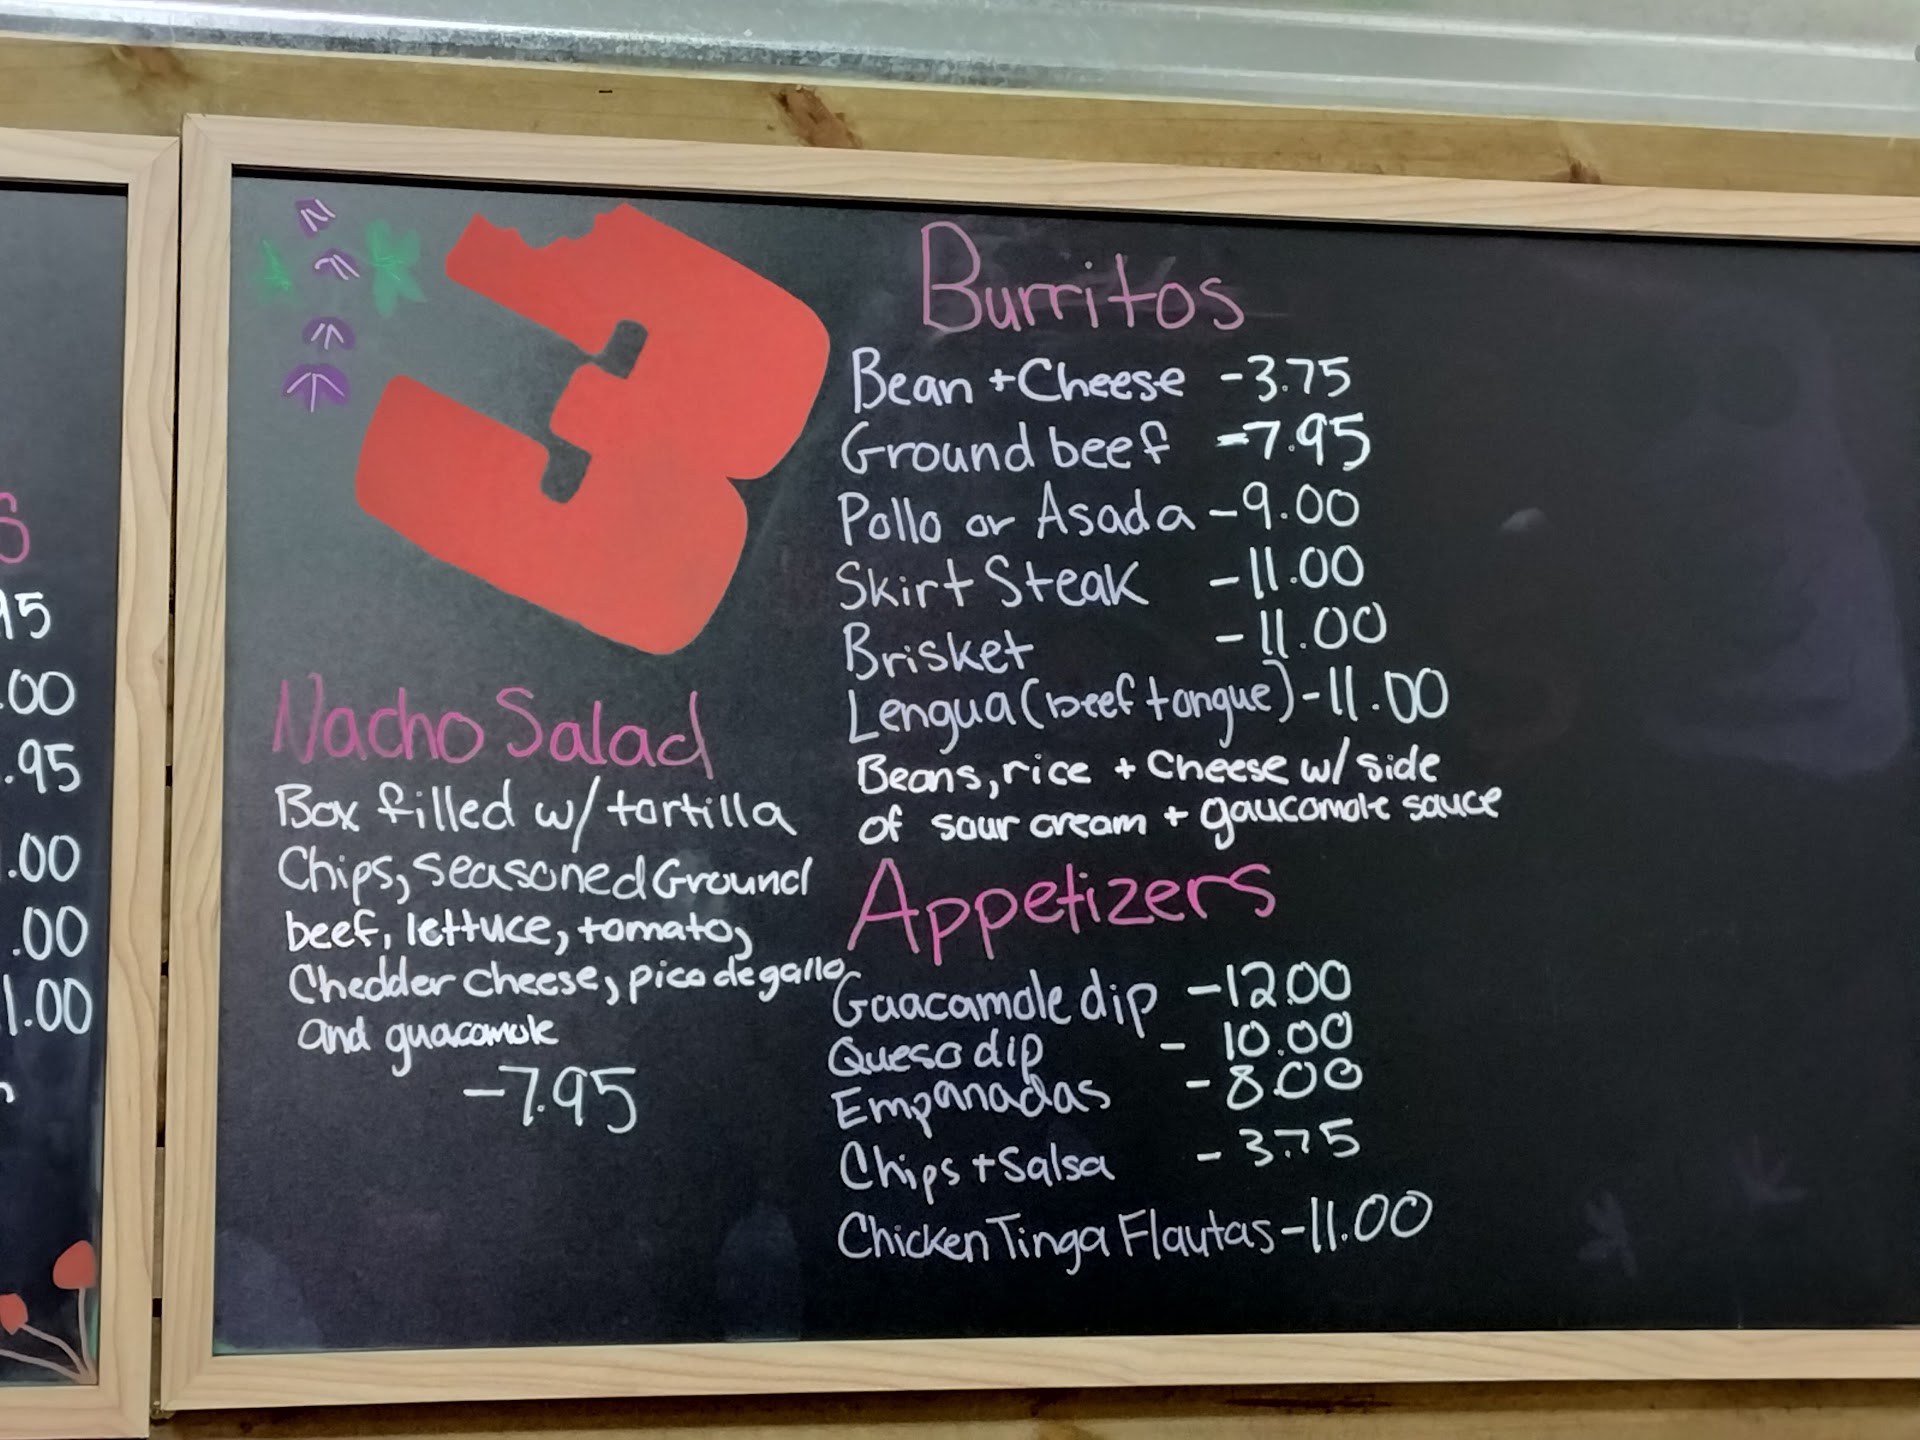 S
95
.00
.95
1.00
.00
1.00
3
Nacho Salad
Box filled w/ tortilla
Chips, seasoned Ground
beef, lettuce, tomato,
Chedder cheese, pico de gallo
and guacamole
-7.95
Burritos
Bean + Cheese -3.75
Ground beef -7.95
Pollo or Asada -9.00
Skirt Steak -11.00
Brisket -11.00
Lengua (beef tongue) -11.00
Beans, rice + Cheese w/ side
of sour cream + gaucamole sauce
Appetizers
Guacamole dip -12.00
Queso dip - 10.00
Empanadas - 8.00
Chips + Salsa - 3.75
Chicken Tinga Flautas -11.00